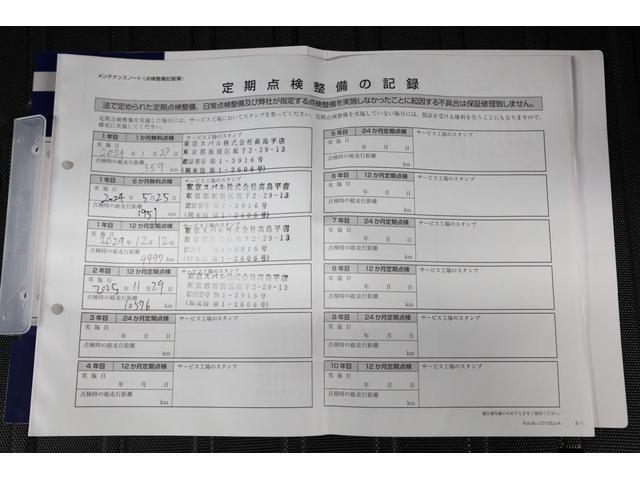 メンテナンスノート(点検整備記録簿)
定期点検整備の記録
法で定められた定期点検整備、日常点検整備及び弊社が指定する点検整備を実施しなかったことに起因する不具合は保証修理致しません。
定期点検整備を実施した場合には、サービス工場においてスタンプを貰ってください。定期点検整備を実施していない場合は、保証を受ける権利を失うこともありますので、
確実に実施してください。
1年目 1か月無料点検
サービス工場のスタンプ
実施日
2024年1月27日
点検時の総走行距離
359 km
東京スバル株式会社高島平店
東京都板橋区坂下2-29-13
認証番号 第1-3916号
(関東指 第1-2606号)
1年目 6か月無料点検
サービス工場のスタンプ
実施日
2024年5月25日
点検時の総走行距離
1951 km
東京スバル株式会社高島平店
東京都板橋区坂下2-29-13
認証番号 第1-3916号
(関東指 第1-2606号)
1年目 12か月定期点検
サービス工場のスタンプ
実施日
2024年12月12日
点検時の総走行距離
km
東京スバル株式会社高島平店
東京都板橋区坂下2-29-13
認証番号 第1-3916号
(関東指 第1-2606号)
2年目 12か月定期点検
サービス工場のスタンプ
実施日
2025年11月29日
点検時の総走行距離
10576 km
東京スバル株式会社高島平店
東京都板橋区坂下2-29-13
認証番号 第1-3916号
(関東指 第1-2606号)
3年目 24か月定期点検
サービス工場のスタンプ
実施日
年 月 日
点検時の総走行距離
km
4年目 12か月定期点検
サービス工場のスタンプ
実施日
年 月 日
点検時の総走行距離
km
5年目 24か月定期点検
サービス工場のスタンプ
実施日
年 月 日
点検時の総走行距離
km
6年目 12か月定期点検
サービス工場のスタンプ
実施日
年 月 日
点検時の総走行距離
km
7年目 24か月定期点検
サービス工場のスタンプ
実施日
年 月 日
点検時の総走行距離
km
8年目 12か月定期点検
サービス工場のスタンプ
実施日
年 月 日
点検時の総走行距離
km
9年目 24か月定期点検
サービス工場のスタンプ
実施日
年 月 日
点検時の総走行距離
km
10年目 12か月定期点検
サービス工場のスタンプ
実施日
年 月 日
点検時の総走行距離
km